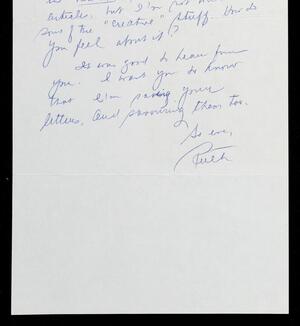 articles, but I'm not
some of the "creative" stuff. How do
you feel about it?
It was good to hear from
you. I want you to know
that I'm saving your
letters, and savouring them too.
So long,
Ruth